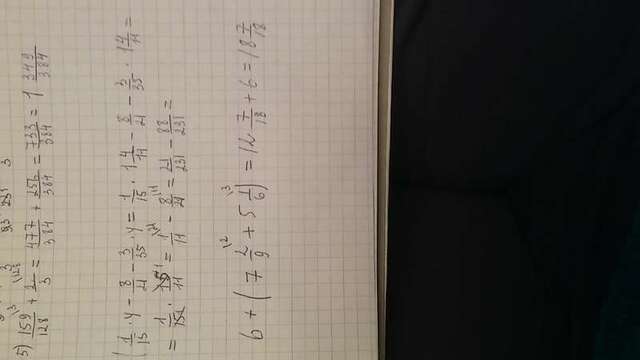 5) 159/128 \3 + 2/3 \128 = 477/384 + 256/384 = 733/384 = 1 349/384
1/15 · y − 8/21 − 3/35 · y = 1/15 · 1 4/11 − 8/21 − 3/35 · 1 4/11 =
= 1/15 · 15/11 = 1/11 \21 − 8/21 \11 = 21/231 − 88/231 =
6 + (7 2/9 \2 + 5 1/6 \3) = 12 7/18 + 6 = 18 7/18